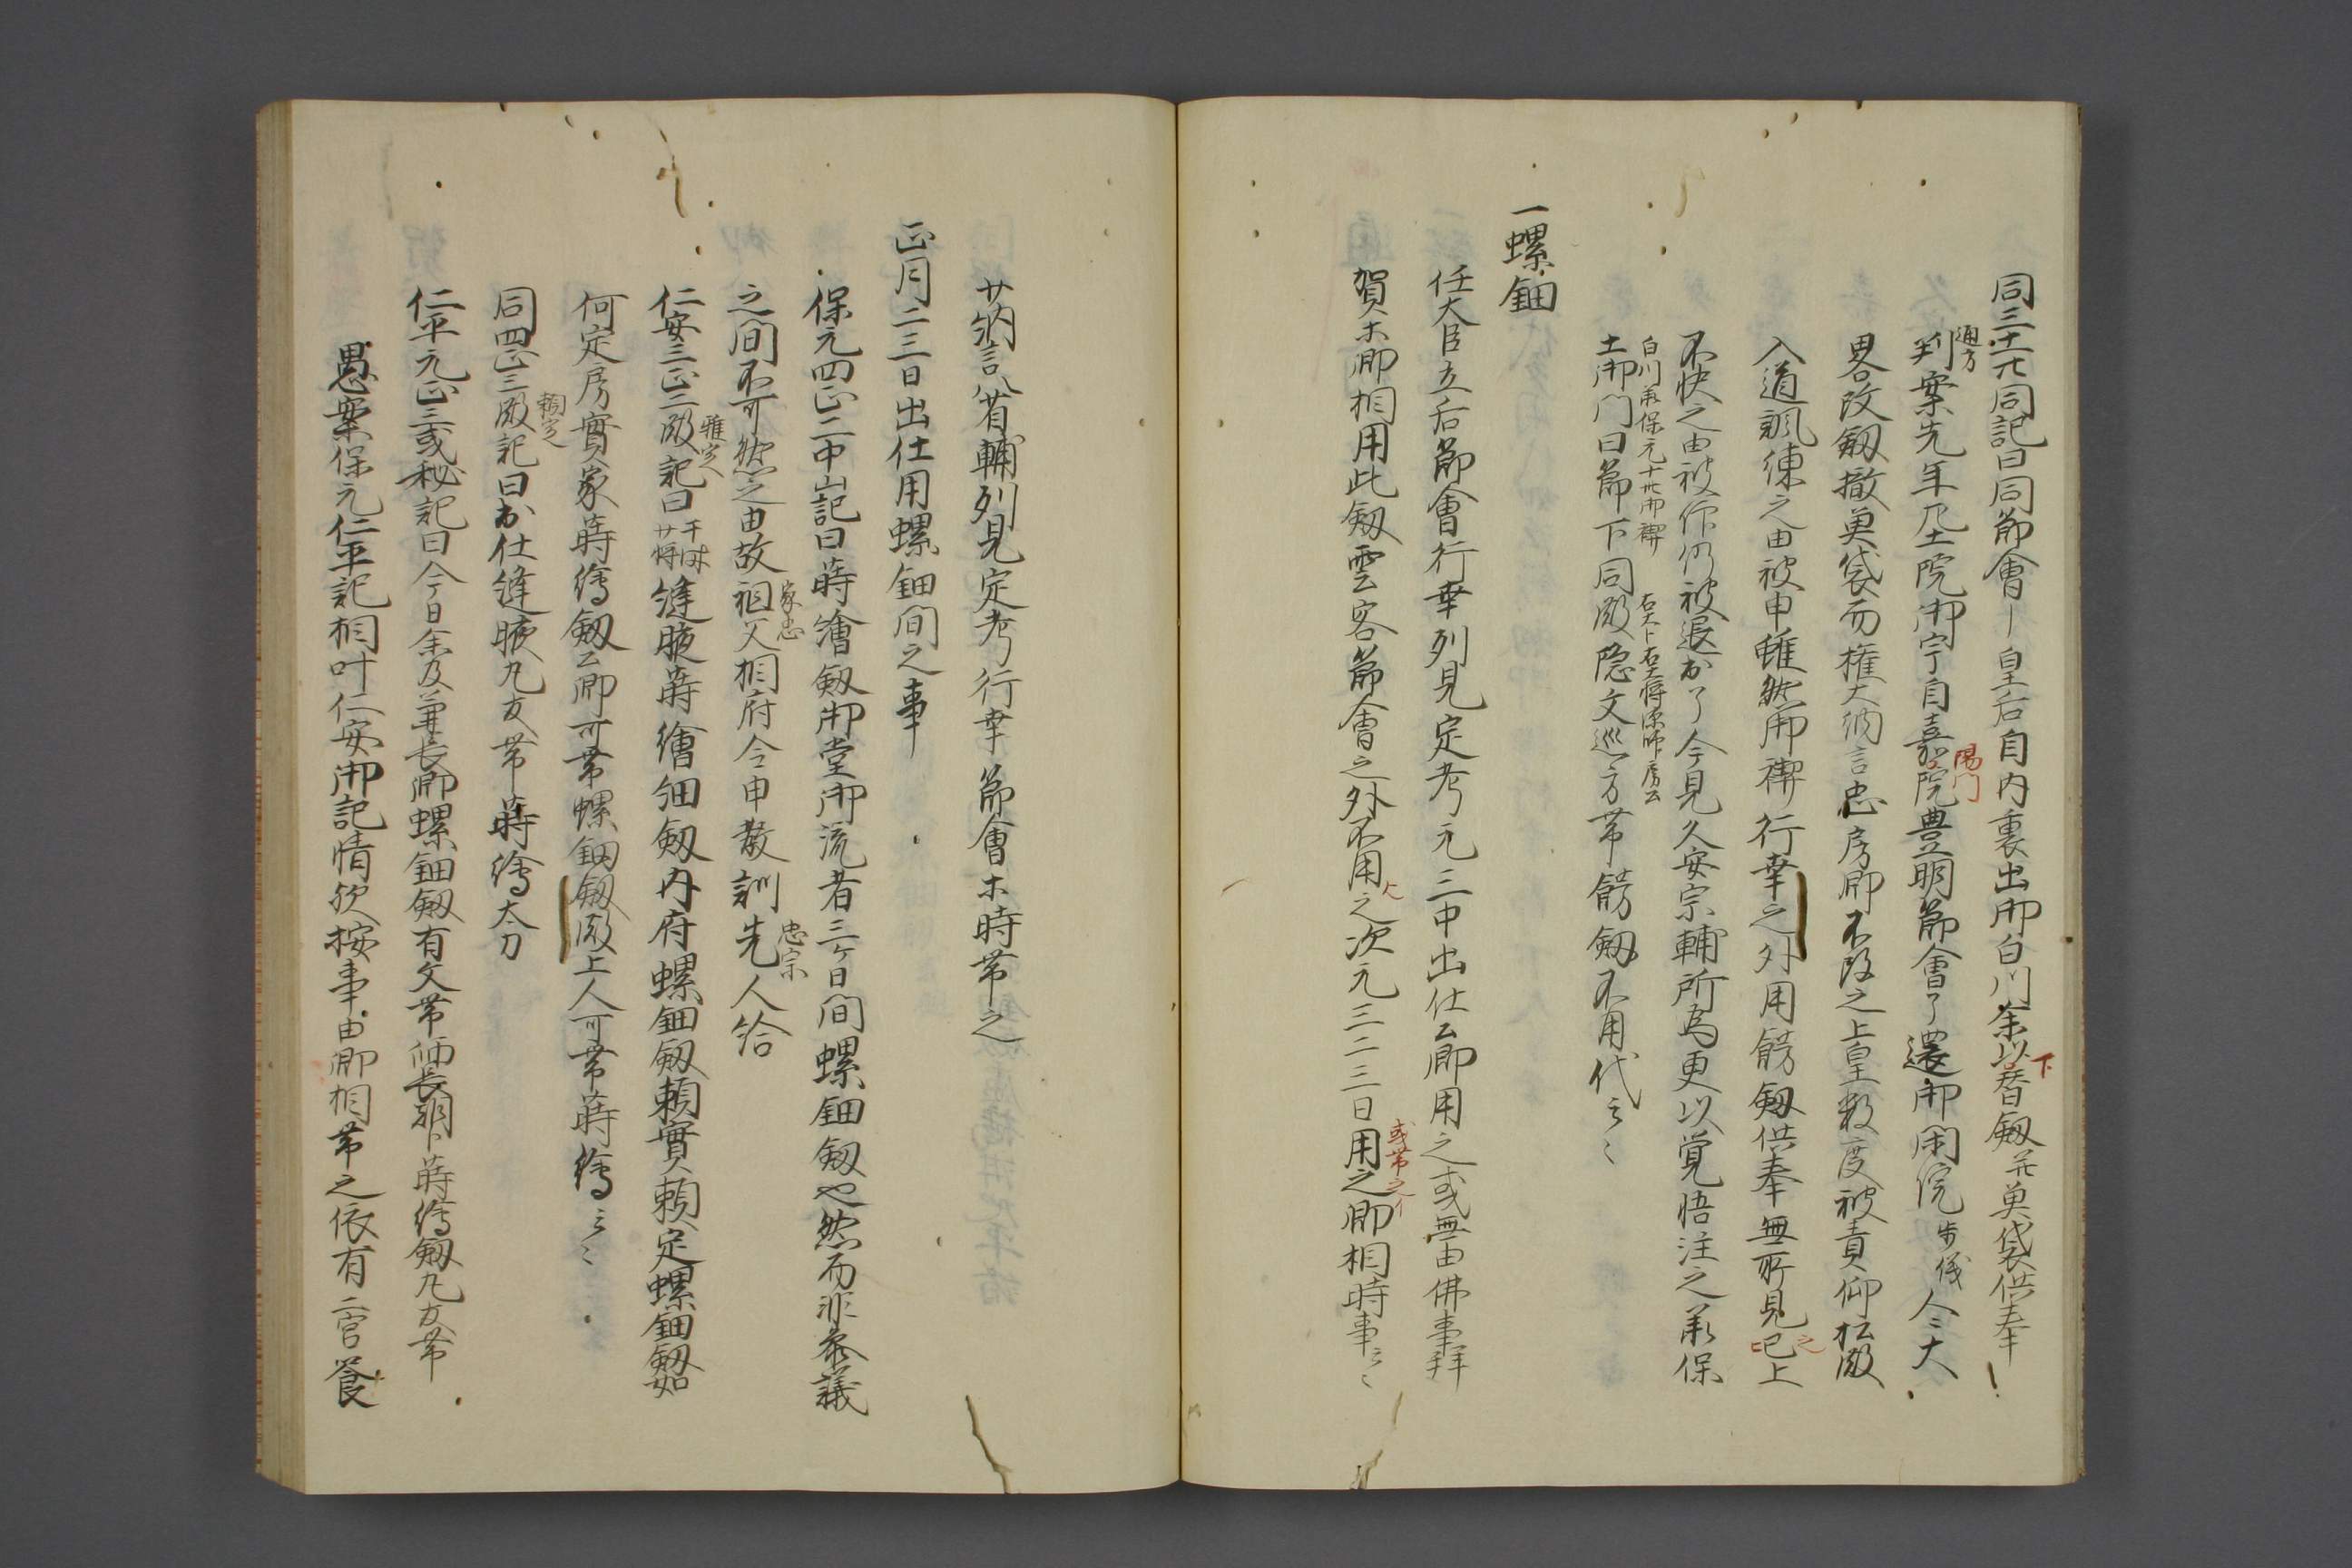 同三十一十一同記曰同節會皇后自内裏出御白川余以下着劔并魚袋供奉
通方
判案先年乃土院御宇自嘉院豊明節會了還御閑院歩儀人々大
陽門
畧改劔撤魚袋而權大納言忠房卿不改之上皇数度被責仰松殿
入道諷諫之由被申雖然御禊行幸之外用餝劔供奉無所見之已上
不快之由被仰仍被退出了今見久安宗輔所為更以覚悟注之兼保
白川兼保元十廿御禊
土御門曰節下同殿隠文巡方帯餝劔不用代云々
右大臣右大将源師房公
一螺鈿
任大臣立后節會行幸列見定考元三中出仕公卿用之或無由佛事拝
賀等卿相用此劔雲客節會之外不用之次元三二三日用之卿相時事云々
或帯之イ
少納言八省輔列見定考行幸節會等時帯之
正月二三日出仕用螺鈿間之事
保元四正二中山記曰蒔繪劔御堂御流者三ヶ日間螺鈿劔也然而非参議
之間不可然之由故祖父相府令申教訓先人給
家忠
忠宗
仁安三正二殿記曰縫腋蒔繪細劔内府螺鈿劔頼實頼定螺鈿劔如
雅定
于時少将
何定房實家蒔繪劔公卿可帯螺鈿劔殿上人可帯蒔繪云々
同四正三殿記曰出仕縫腋丸友帯蒔繪太刀
頼定
仁平元正三或秘記曰今日余及兼長卿螺鈿劔有文帯師長朝臣蒔繪劔丸友帯
愚案保元仁平記相叶仁安御記情欲按事由卿相帯之依有二宮饗